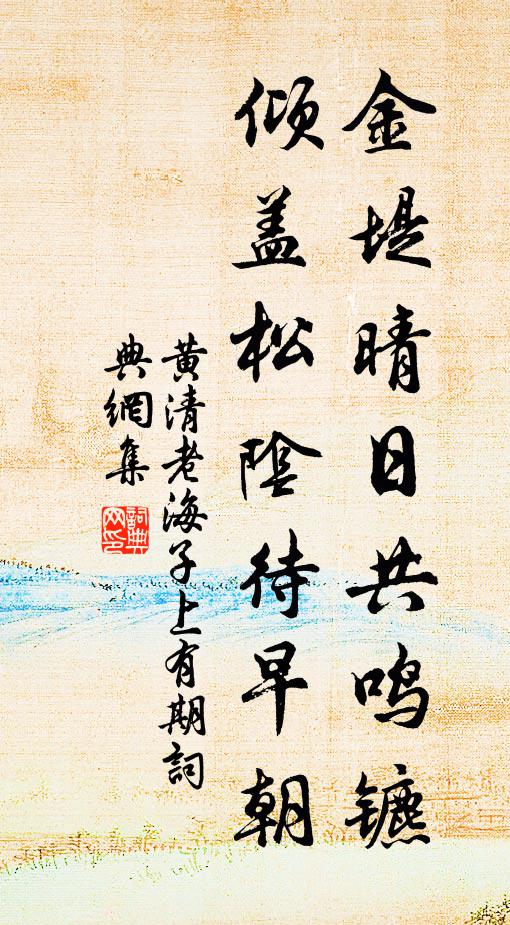 金堤晴日共鸣镳
倾盖松阴待早朝
黄清老海子上有期詞
典網集
詞典网印